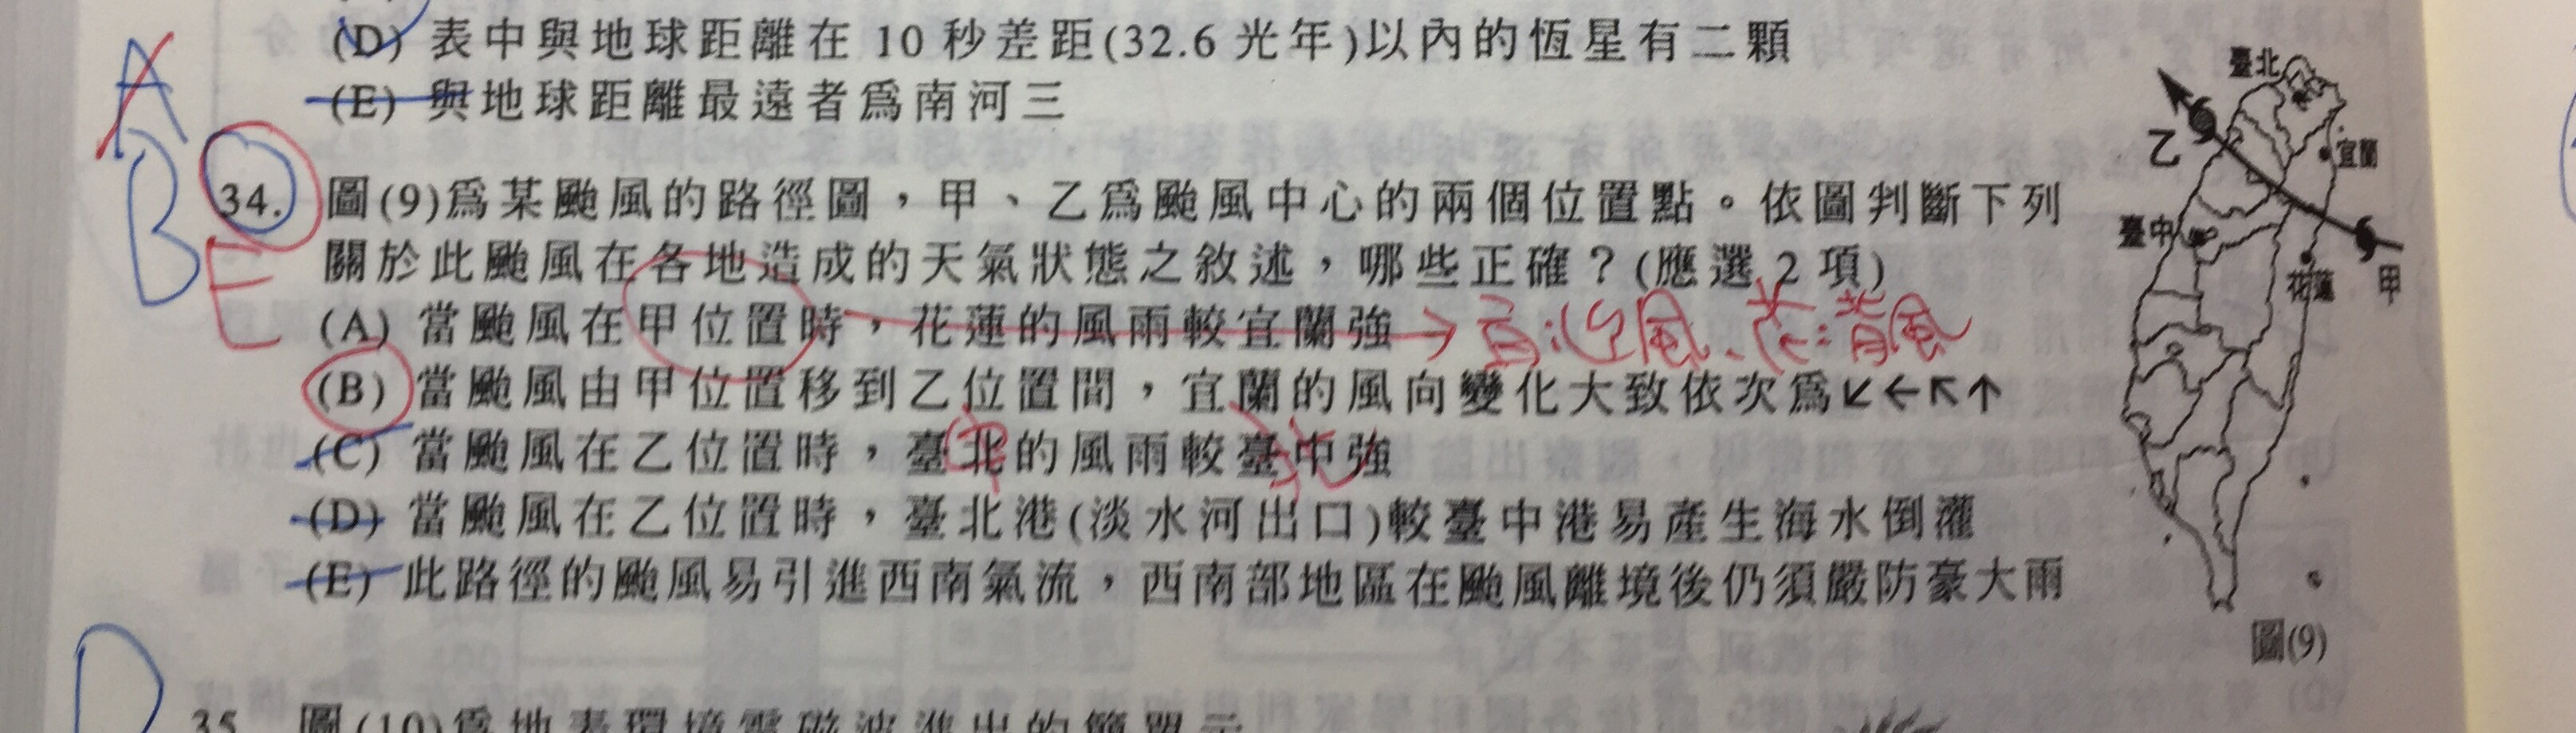 (D) 表中與地球距離在 10 秒差距(32.6 光年)以內的恆星有二顆
(E) 與地球距離最遠者為南河三
A
B
E
34. 圖(9)為某颱風的路徑圖，甲、乙為颱風中心的兩個位置點。依圖判斷下列
關於此颱風在各地造成的天氣狀態之敘述，哪些正確？(應選 2 項)
(A) 當颱風在甲位置時，花蓮的風雨較宜蘭強 → 宜:迎風、花:背風
(B) 當颱風由甲位置移到乙位置間，宜蘭的風向變化大致依次為↙←↖↑
(C) 當颱風在乙位置時，臺北的風雨較臺中強
中 北
(D) 當颱風在乙位置時，臺北港(淡水河出口)較臺中港易產生海水倒灌
(E) 此路徑的颱風易引進西南氣流，西南部地區在颱風離境後仍須嚴防豪大雨
臺北
乙
宜蘭
臺中
花蓮
甲
圖(9)
D
35. 圖(10)為地表環境電磁波進出的簡單示